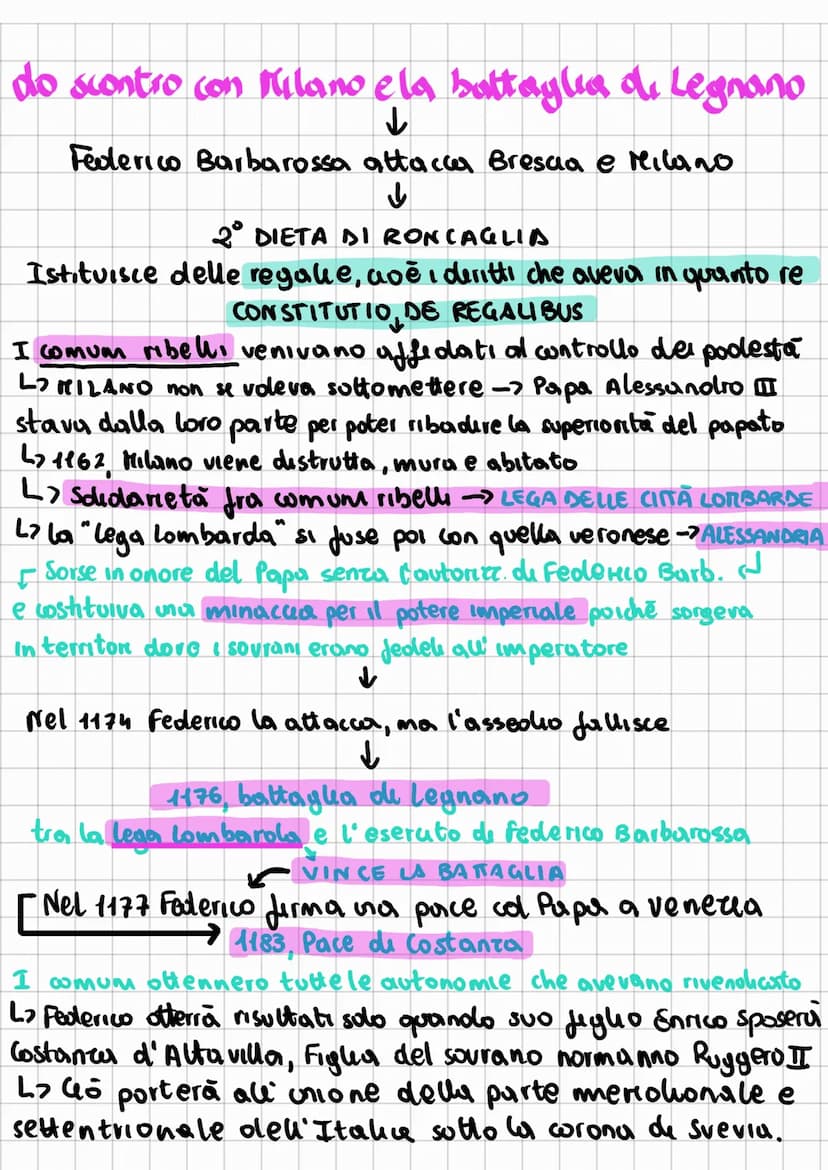 Lo scontro con Milano e la battaglia di Legnano
↓
Federico Barbarossa attacca Brescia e Milano
↓
2° DIETA DI RONCAGLIA
Istituisce delle regalie, cioè i diritti che aveva in quanto re
CONSTITUTIO DE REGALIBUS
I comuni ribelli venivano affidati al controllo dei podestà
↳ MILANO non si voleva sottomettere → Papa Alessandro III
stava dalla loro parte per poter ribadire la superiorità del papato
↳ 1162, Milano viene distrutta, mura e abitato
↳ Solidarietà fra comuni ribelli → LEGA DELLE CITTÀ LOMBARDE
↳ la "Lega Lombarda" si fuse poi con quella veronese → ALESSANDRIA
Sorse in onore del Papa senza l'autorizz. di Federico Barb.
e costituiva una minaccia per il potere imperiale poiché sorgeva
in territori dove i sovrani erano fedeli all'imperatore
↓
Nel 1174 Federico la attacca, ma l'assedio fallisce
↓
1176, battaglia di Legnano
tra la lega lombarda e l'esercito di Federico Barbarossa
VINCE LA BATTAGLIA
Nel 1177 Federico firma una pace col Papa a Venezia
1183, Pace di Costanza
I comuni ottennero tutte le autonomie che avevano rivendicato
↳ Federico otterrà risultati solo quando suo figlio Enrico sposerà
Costanza d'Altavilla, Figlia del sovrano normanno Ruggero II
↳ Ciò porterà all'unione della parte meridionale e
settentrionale dell'Italia sotto la corona di Svevia.